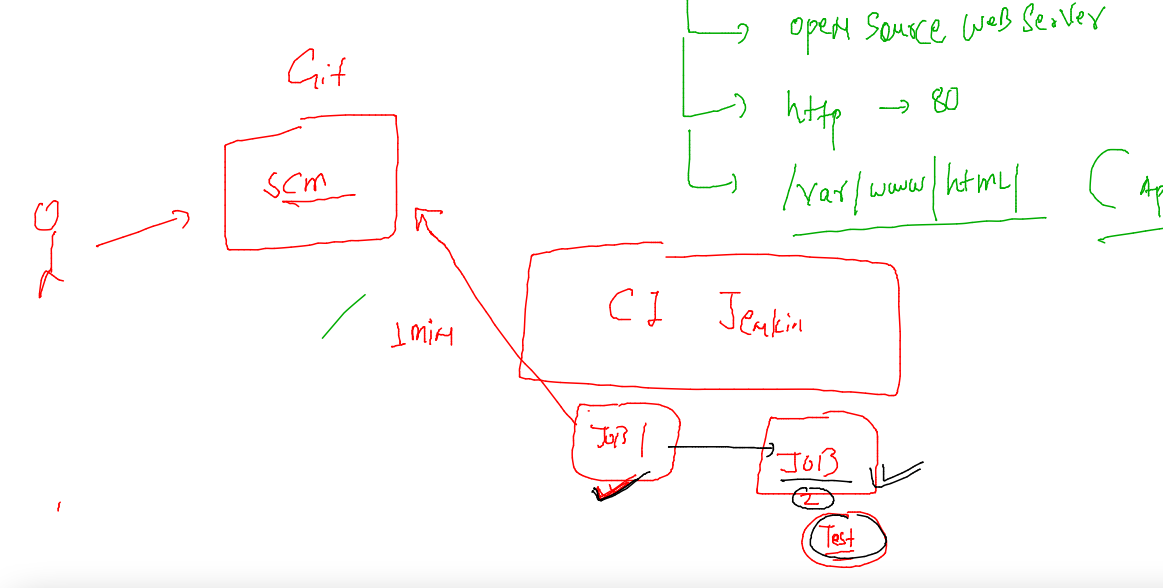 open source web server
http → 80
/var/www/html/ ( Ap
Git
SCM
CI Jenkin
1 min
JOB 1
JOB
2
Test